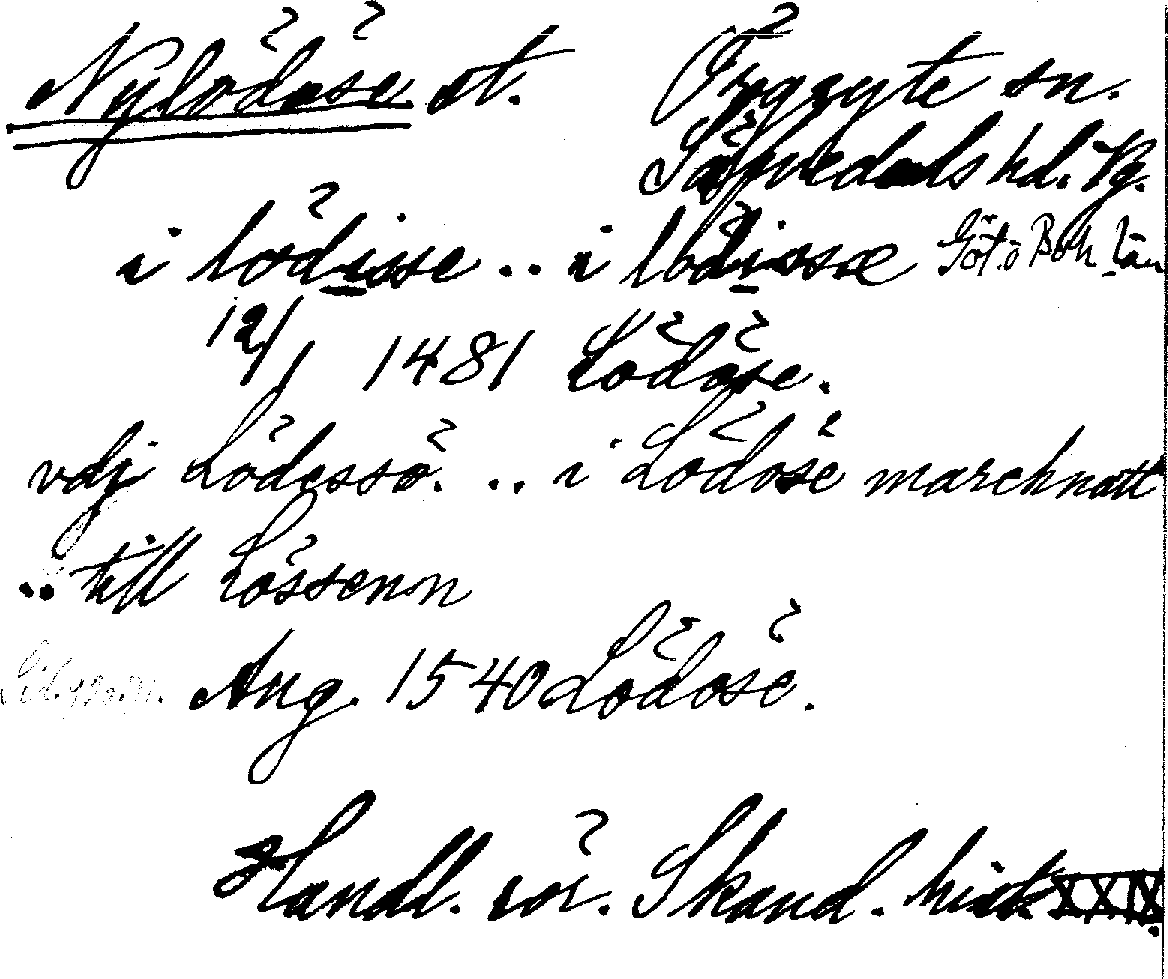 Nylödöse st. Örgryte sn.
Sävedals hd. Vg.
i lödisse .. i lödissœ Göt. o Boh län
12/1 1481 Lödöse.
vdj Lödessö. .. i Lödöse marchnatt
.. till Lössenn
Aug. 1540 Lödöse.
Handl. rör. Skand. hist. XXIX.